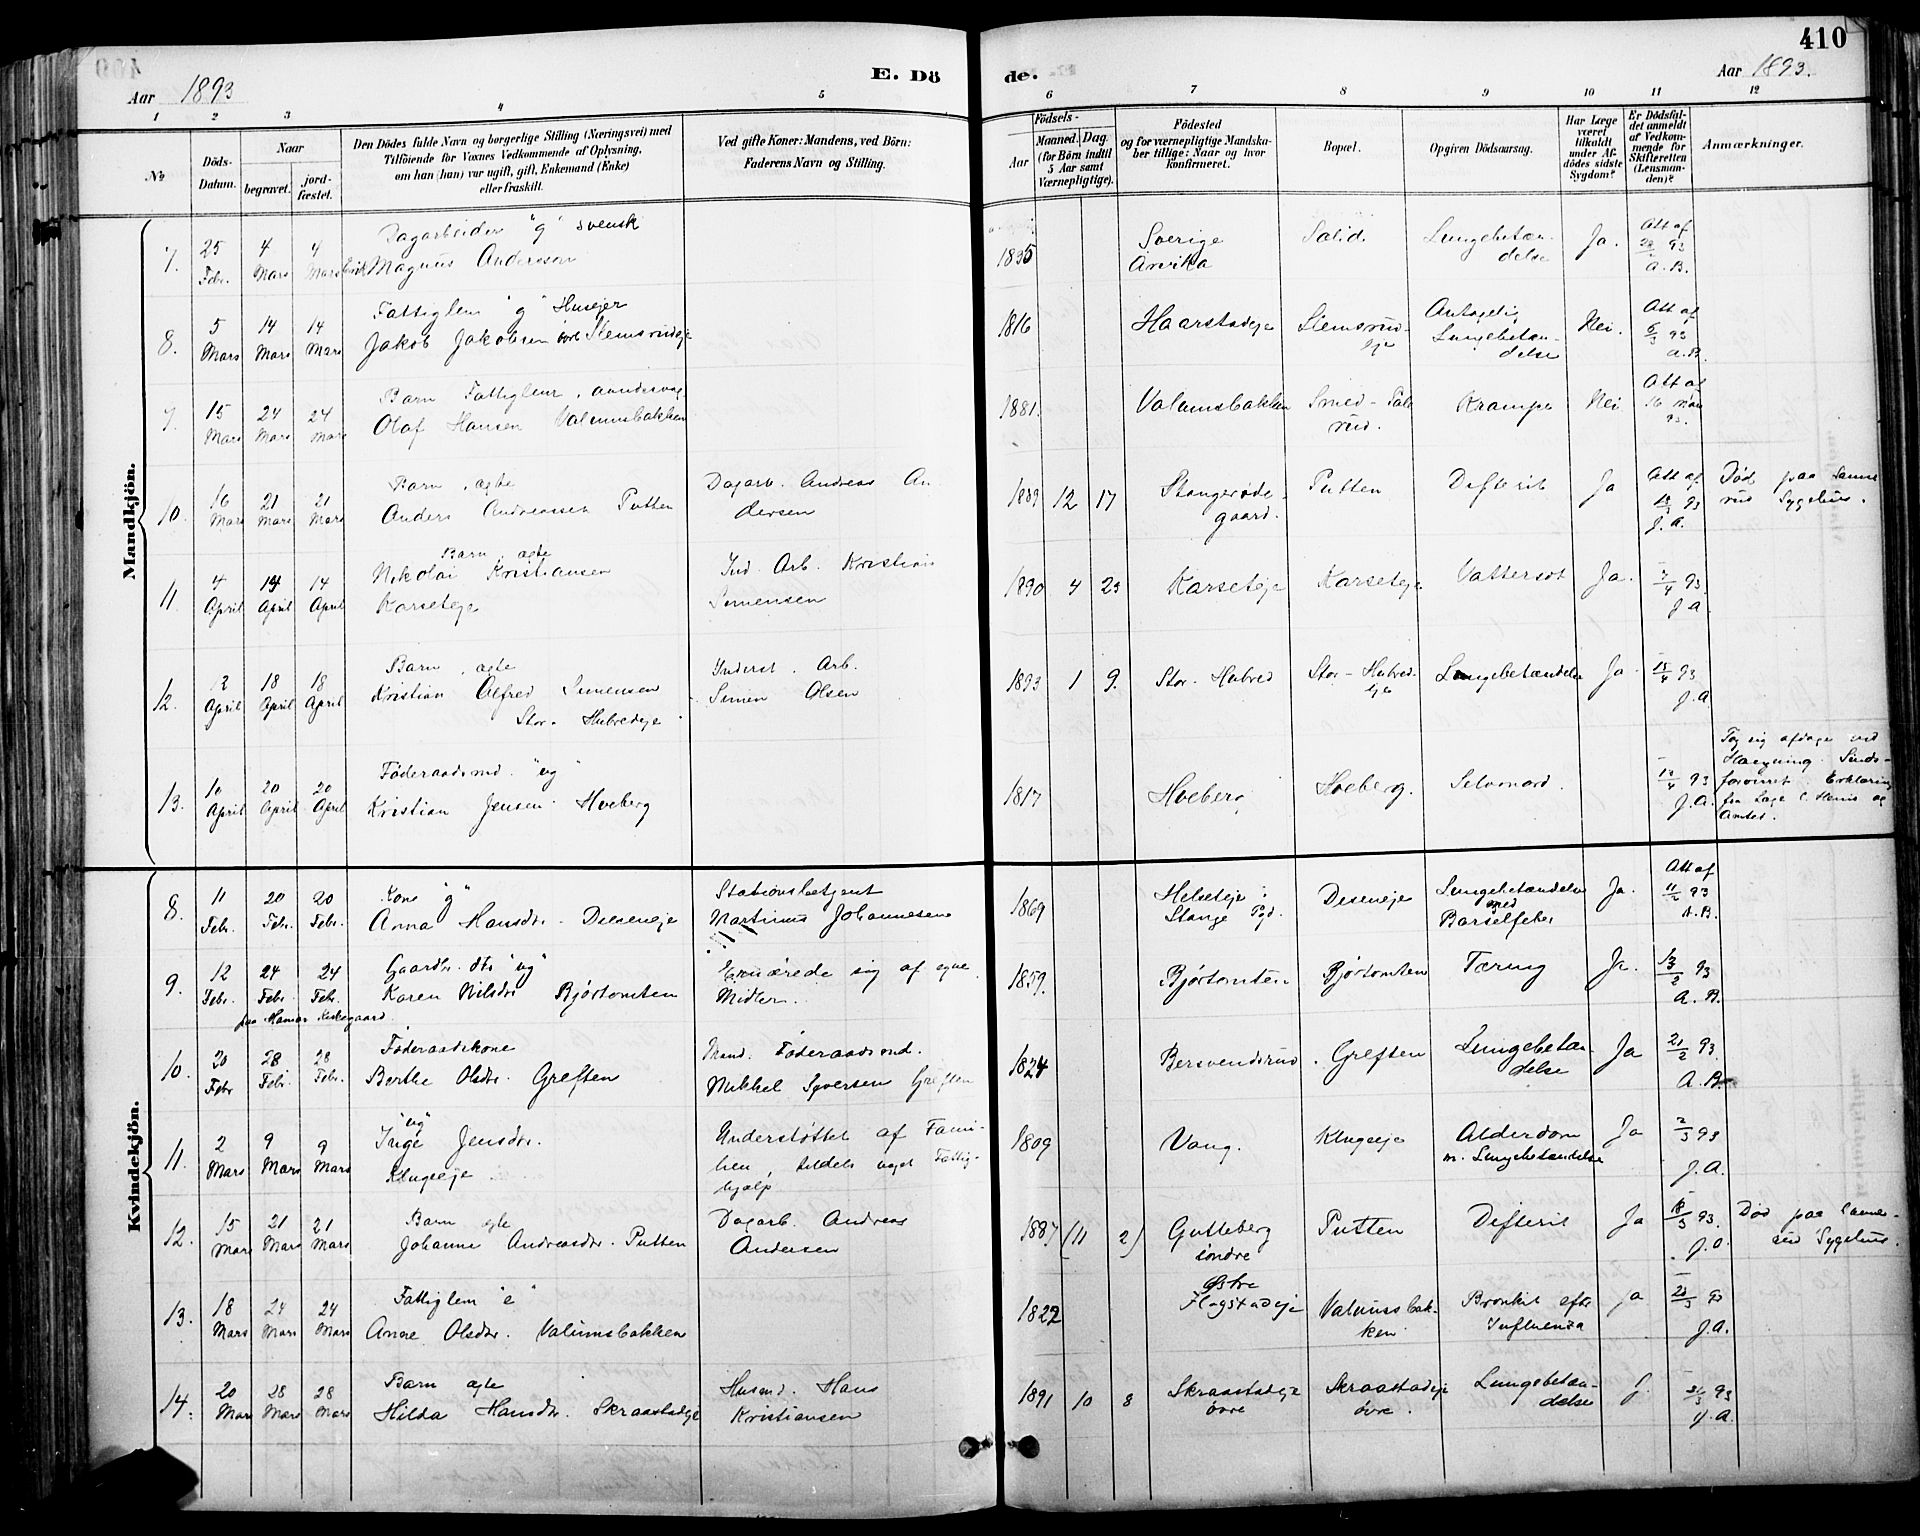 410
E. Dö
de.
Aar 1893
Aar 1893.
1 2 3 4 5
6 7 8 9 10 11 12
No
Döds-Datum.
Naar
begravet.
jord-fæstet.
Den Dödes fulde Navn og borgerlige Stilling (Næringsvei) med
Tilföiende for Voxnes Vedkommende af Oplysning,
om han (hun) var ugift, gift, Enkemand (Enke)
eller fraskilt.
Ved gifte Koner: Mandens, ved Börn:
Faderens Navn og Stilling.
Födsels-
Aar
Maaned. Dag.
(for Börn indtil
5 Aar samt
Værnepligtige).
Födested
og for værnepligtige Mandska-
ber tillige: Naar og hvor
konfirmeret.
Bopæl.
Opgiven Dödsaarsag.
Har Læge
været
tilkaldt
under Af-
dödes sidste
Sygdom?
Er Dödsfal-
det anmeldt
af Vedkom-
mende for
Skifteretten
(Lensman-
den)?
Anmærkninger.
Mandkjön.
7. 25 Febr. 4 Mars 4 Mars Dagarbeider "g" svensk
Magnus Anderson
1835 Sverige
Arvika
Lungebetæn-
delse
Ja.
Att af
93
A.B.
8. 5 Mars 14 Mars 14 Mars Fattiglem "g" Husejer
Jakob Jakobsen Stemsrudeje
1816 Haarstadeje Stemsrud-
eje
Antagelig
Lungebetæn-
delse
Nei.
Att af
6/3 93
A.B.
15 Mars 24 Mars 24 Mars Barn Fattiglem,
Olaf Hansen Valumsbakken
1881. Valumsbakken Smed-
rud.
Krampe Nei
Att af
16 Mars
93.
10. 16 Mars 21 Mars 21 Mars Barn, ægte
Anders Andreassen Putten
Dagarb. Andreas An-
dersen
1889 12 17 Stangerøde-
gaard.
Putten Difterit Ja
Att af
93
J.A.
Død paa
Sygehus.
11. 4 April 14 April 14 April Barn, ægte
Nikolai Kristiansen
Karseteje
Ind. Arb. Kristian
Simensen
1890 4 23 Karseteje Karseteje Vattersot Ja.
7/4 93
J.A.
12. 2 April 18 April 18 April Barn, ægte
Kristian Alfred Simensen
Stor-Hubredeje
Inderst. Arb.
Simen Olsen
1893 1 9. Stor-Hubred Stor-Hubred-
eje
Lungebetændelse Ja
15/4 93
J.A.
13. 10 April 20 April 20 April Føderaadsmd. "ug"
Kristian Jensen Hveberg
1817 Hveberg Hveberg. Selvmord.
93
J.A.
Tog sig afdage ved
Hængning. Sinds-
forvirret. Erklæring
fra Læge og
Amtet.
Kvindekjön.
8. 11 Febr. 20 Febr. 20 Febr. Kone "g"
Anna Hansdtr. Deseneje
Stationsbetjent
Martinus Johannesen
1869 Helseteje
Stange Pgd.
Deseneje Lungebetændelse
med
Barselfeber
Ja.
Att af
11/2 93
A.B.
9. 12 Febr. 24 Febr. 24 Febr. Gaardbr. dtr "ug"
Karen Nilsdtr Bjørtomten
paa Hamar Kirkegaard.
Ernærede sig af egne
Midler.
1859. Bjørtomten Bjørtomten Tæring Ja.
93
A.B.
10. 20 Febr 28 Febr. 28 Febr. Føderaadskone
Berthe Olsdtr. Greften
Mand. Føderaadsmd.
Mikkel Syversen Greften
1824 Bersvendsrud Greften Lungebetæn-
delse
Ja
21/2 93.
A.B.
11. 2 Mars 9 Mars 9 Mars "ug"
Inge Jensdtr.
Klugseje
Understøttet af Fami-
lien, tildels noget Fattig-
hjælp
1809 Vang. Klugseje Alderdom
m. Lungebetændelse
Ja
2/3 93
J.A.
12. 15 Mars 21 Mars 21 Mars Barn ægte
Johanne Andreasdtr. Putten
Dagarb. Andreas
Andersen
1887 (11 2) Gutteberg
søndre
Putten Difterit Ja
93.
J.A.
Død paa
Sygehus.
13. 18 Mars 24 Mars 24 Mars Fattiglem "e"
Anne Olsdtr. Valumsbakken
1822 Østre
Flagstadeje
Valumsbak-
ken
Bronkit efter
Influenza
Ja
20/3 93
J.A.
14. 20 Mars 28 Mars 28 Mars Barn ægte
Hilda Hansdtr. Skraastadeje
Husmd. Hans
Kristiansen
1891 10 8 Skraastadeje
øvre
Skraastadeje
øvre.
Lungebetæn-
delse
J.
21/3 93
J.A.